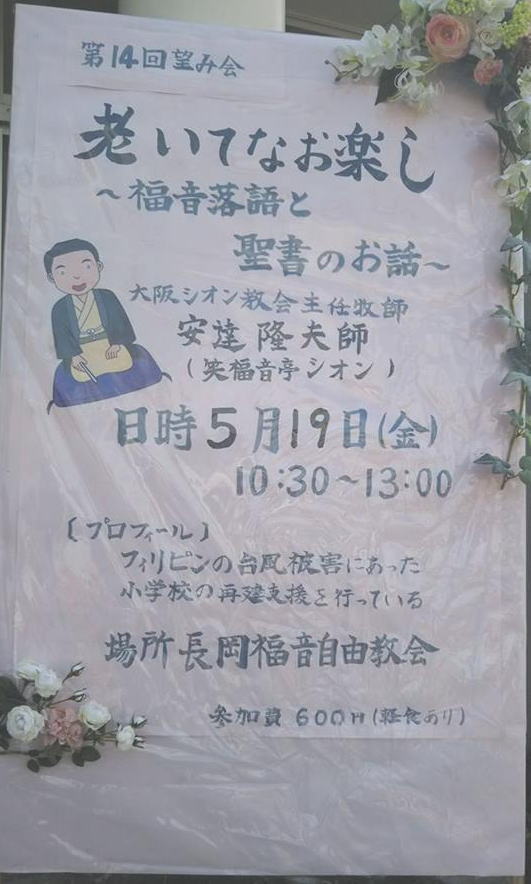 第14回望み会
老いてなお楽し
～福音落語と
聖書のお話～
大阪シオン教会主任牧師
安達隆夫師
(笑福音亭シオン)
日時5月19日(金)
10:30～13:00
〔プロフィール〕
フィリピンの台風被害にあった
小学校の再建支援を行っている
場所長岡福音自由教会
参加費600円(軽食あり)